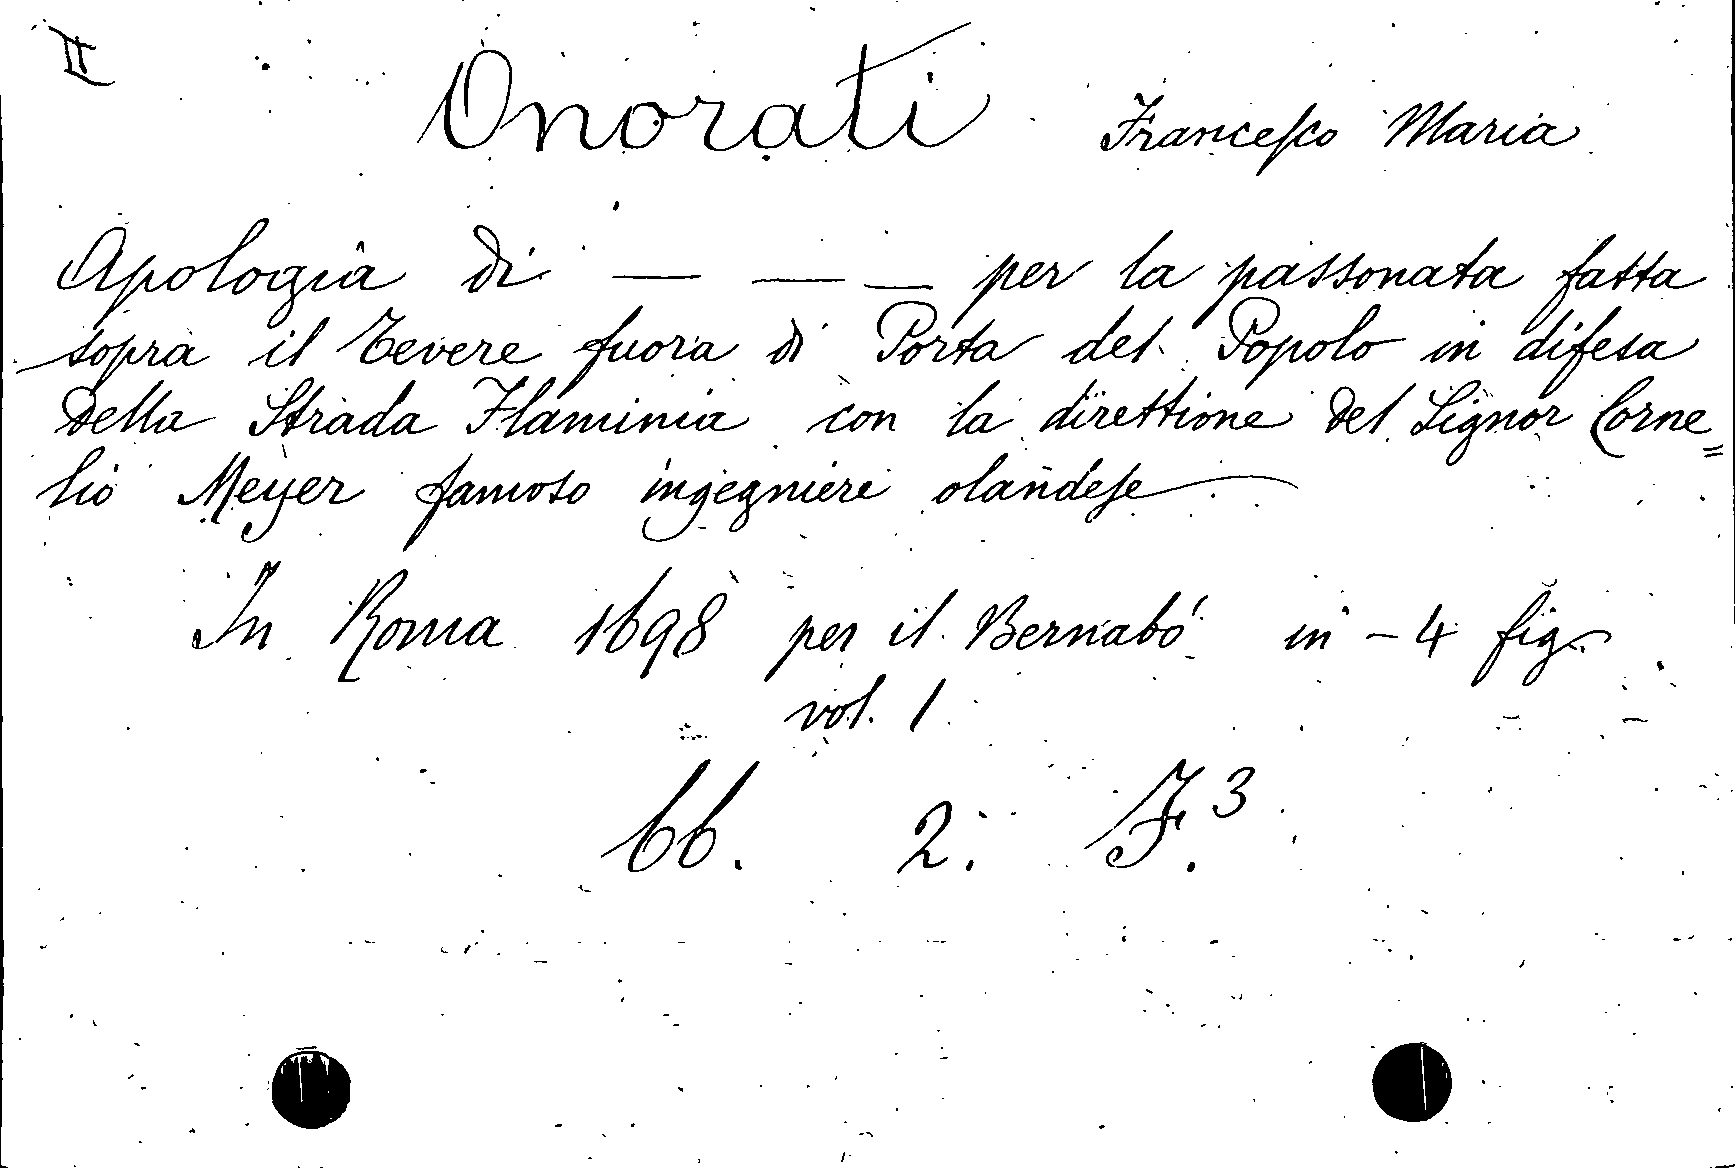 II
Onorati Francesco Maria
Apologia di — — — per la passonata fatta
sopra il Tevere fuora di Porta del Popolo in difesa
della Strada Flaminia con la direttione del Signor Corne=
lio Meyer famoso ingegniere olandese
In Roma 1698 per il Bernabó in - 4 fig.
vol. 1
66. 2. F.3